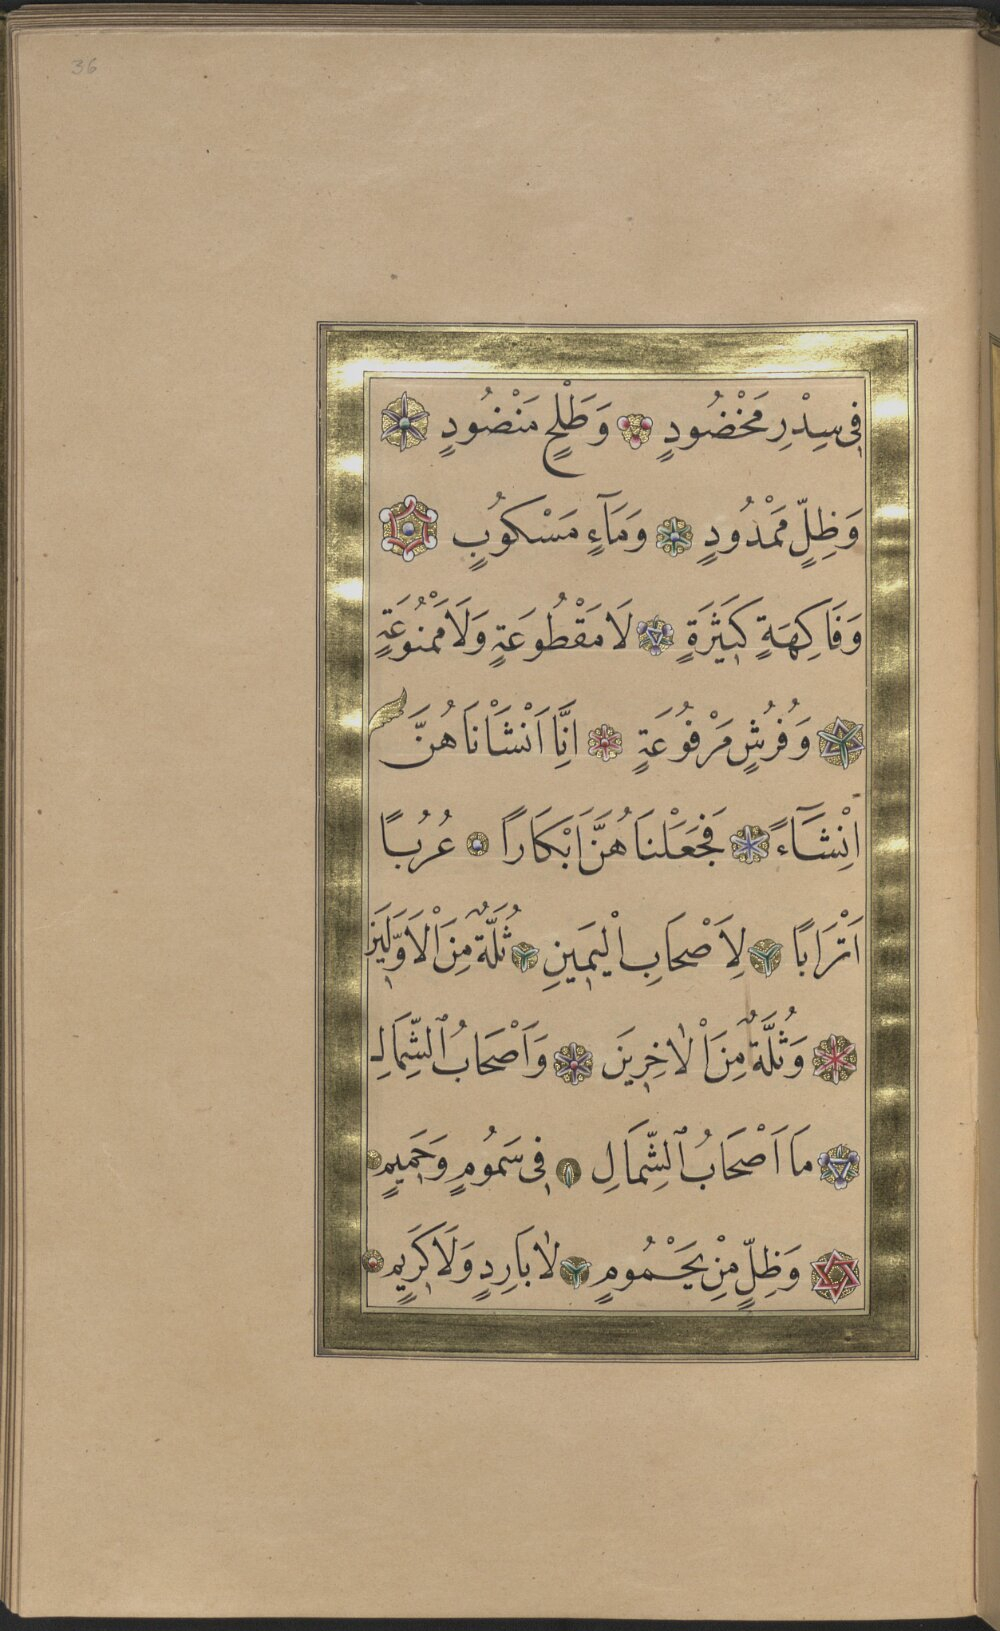 36
فِى سِدْرٍ مَخْضُودٍ وَطَلْحٍ مَنْضُودٍ
وَظِلٍّ مَمْدُودٍ وَمَآءٍ مَسْكُوبٍ
وَفَاكِهَةٍ كَثِيرَةٍ لَا مَقْطُوعَةٍ وَلَا مَمْنُوعَةٍ
وَفُرُشٍ مَرْفُوعَةٍ اِنَّا اَنْشَأْنَاهُنَّ
اِنْشَآءً فَجَعَلْنَاهُنَّ اَبْكَارًا عُرُبًا
اَتْرَابًا لِاَصْحَابِ الْيَمِينِ ثُلَّةٌ مِنَ الْاَوَّلِينَ
وَثُلَّةٌ مِنَ الْاٰخِرِينَ وَاَصْحَابُ الشِّمَالِ
مَا اَصْحَابُ الشِّمَالِ فِى سَمُومٍ وَحَمِيمٍ
وَظِلٍّ مِنْ يَحْمُومٍ لَا بَارِدٍ وَلَا كَرِيمٍ